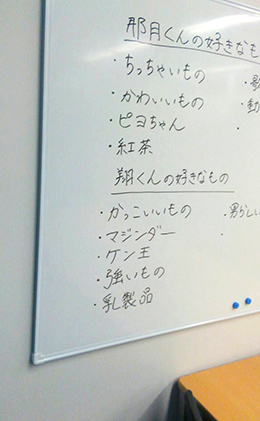 那月くんの好きなも
・ちっちゃいもの
・かわいいもの
・ピヨちゃん
・紅茶
・歌
・動
翔くんの好きなもの
・かっこいいもの
・マジンダー
・ケン王
・強いもの
・乳製品
・男らしい